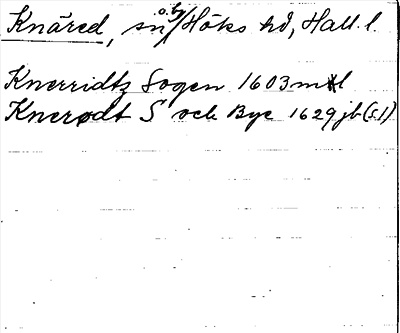 Knäred, sn o. by Höks hd, Hall. l.
Knerridtz Sogen 1603 mtl
Knerødt S och Bye 1629 jb (s 1)